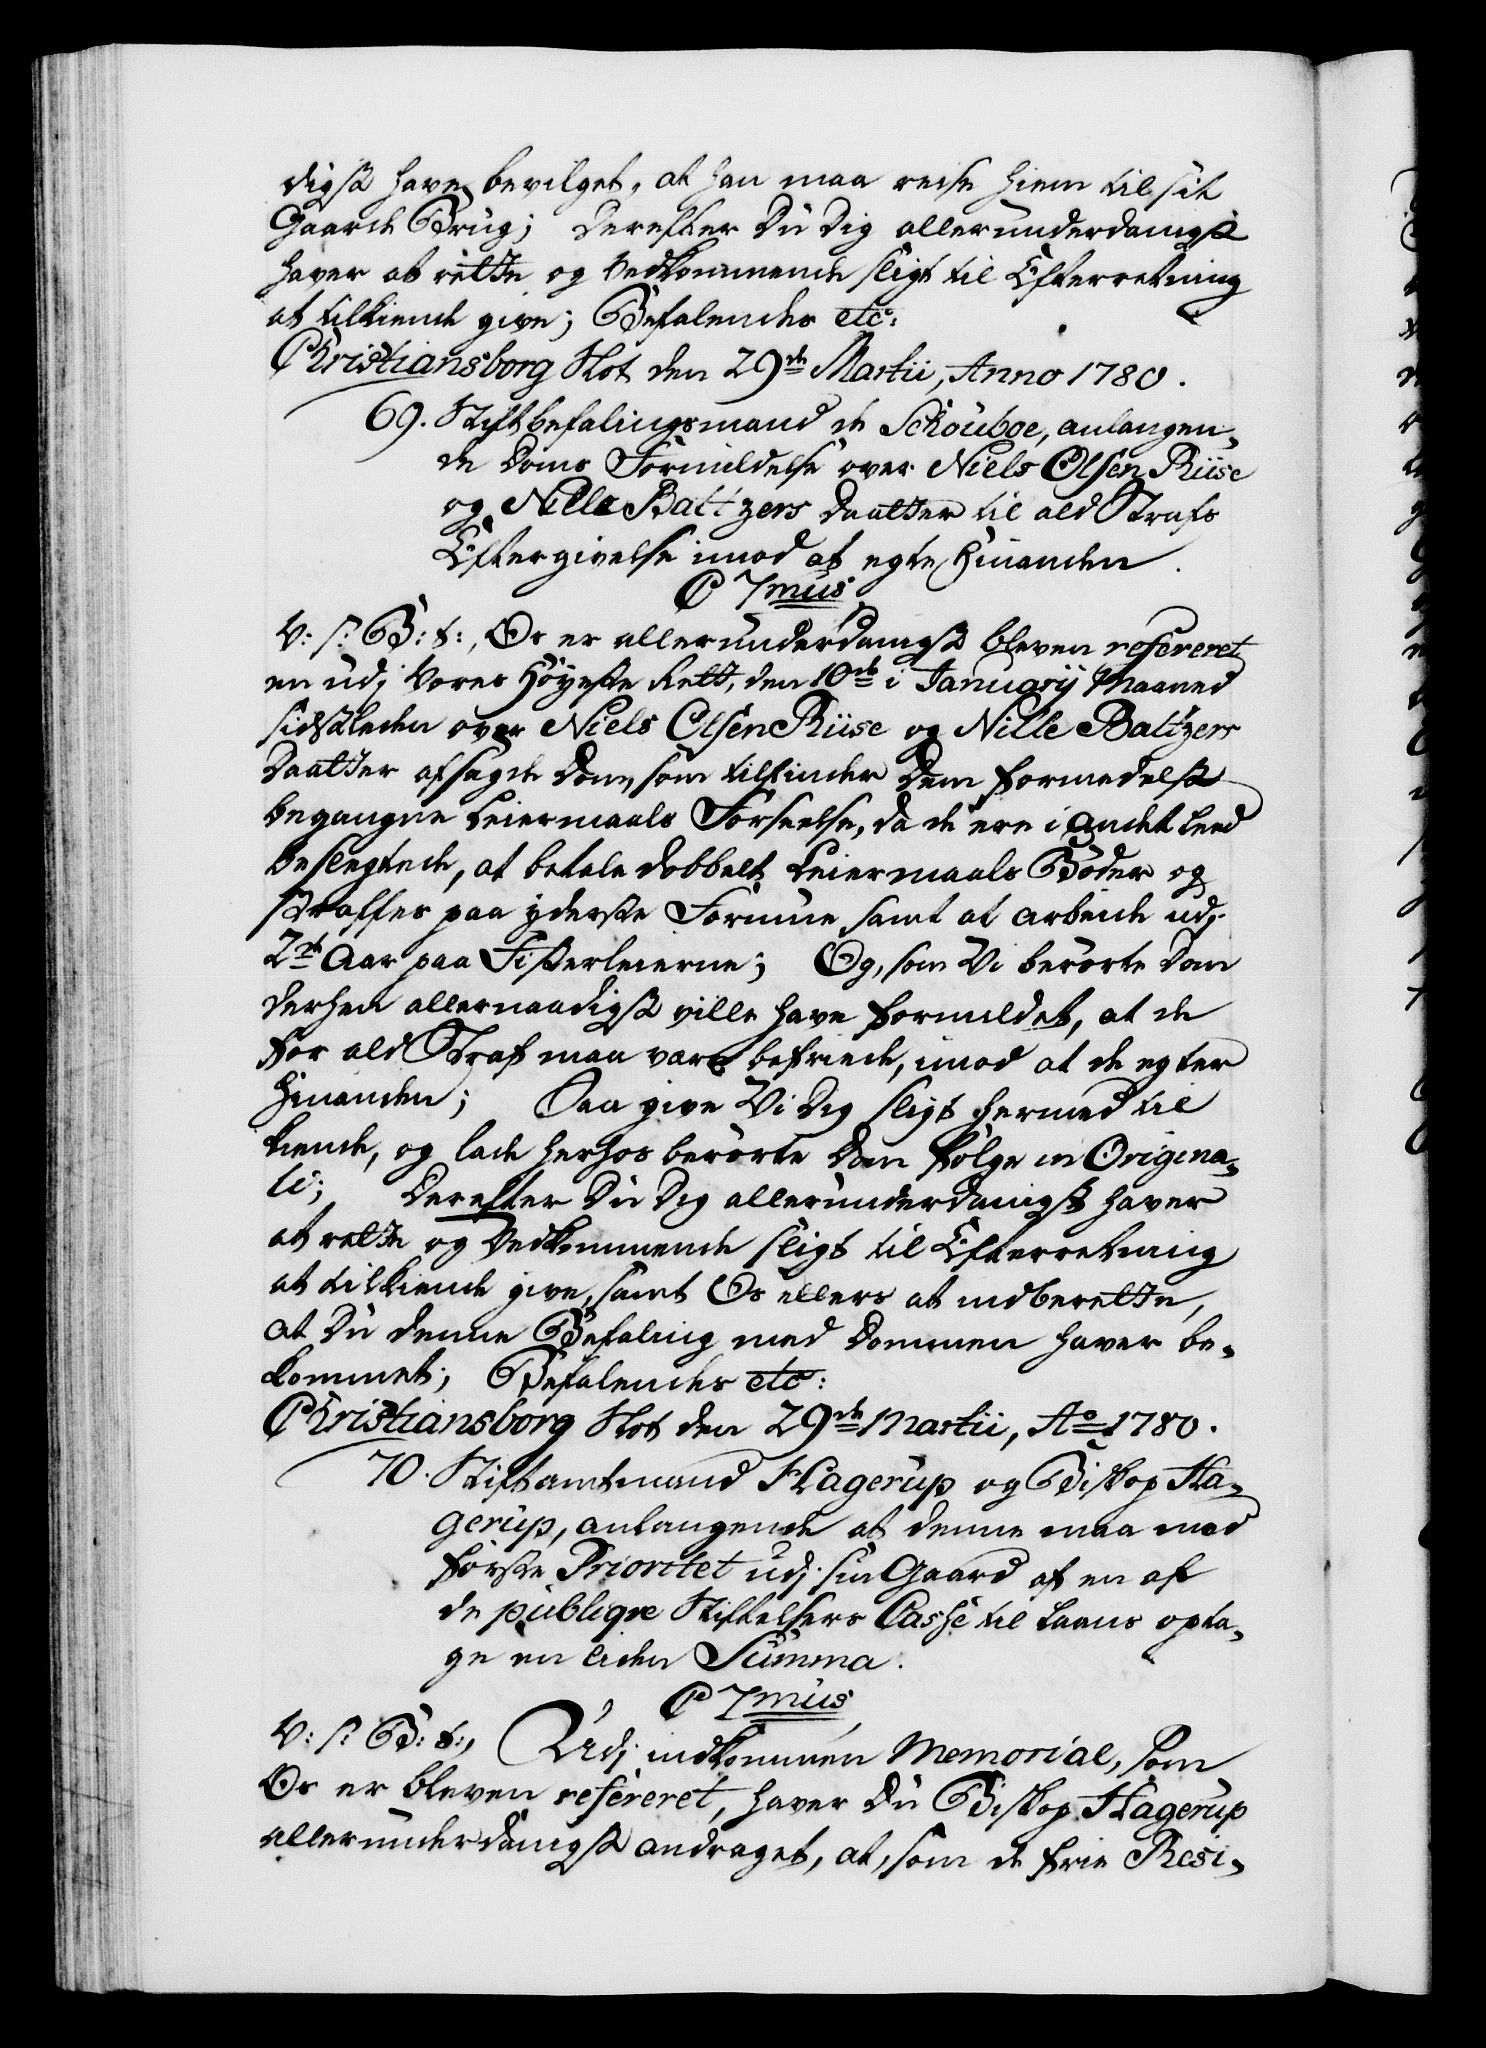 digst have bevilget, at han maa reise hiem til sit
Gaards Brug; Derefter Du Dig allerunderdanigst
haver at rette og Vedkommende sligt til Efterretning
at tilkiende give; Befalendes etc:
Christiansborg Slot den 29de Martii, Anno 1780.
69. Stiftbefalingsmand de Schouboe, anlangen-
de Doms Formildelse over Niels Olsen Riise
og Nille Baltzers Daatter til ald Strafs
Eftergivelse imod at egte hinanden.
C 7mus
V: s: G: t:, Os er allerunderdanigst bleven refereret
en udj Vores Høyeste Rett, den 10de i Januarij Maaned
sidstleden over Niels Olsen Riise og Nille Baltzers
Daatter afsagde Dom, som tilfinder Dem formedelst
begangne Leiermaals Forseelse, da de ere i andet Leed
beslegtede, at betale dobbelt Leiermaals Bøder og
straffes paa yderste Formue samt at arbeide udj
2de Aar paa Fiskerleierne; Og, som Vi berørte Dom
derhen allernaadigst ville have formildet, at de
for ald Straf maa være befriede, imod at de egter
hinanden; Saa give Vi Dig sligt hermed til
kiende, og lade herhos berørte Dom følge in Origina-
li; Derefter Du Dig allerunderdanigst haver
at rette og Vedkommende sligt til Efterretning
at tilkiende give, samt Os ellers at indberette,
at Du denne Befaling med Dommen haver be-
kommet; Befalendes etc:
Christiansborg Slot den 29de Martii, Ao 1780.
70. Stiftamtmand Hagerup og Biskop Ha-
gerup, anlangende at denne maa mod
første Prioritet udj sin Gaard af en af
de publiqve Stiftelsers Casse til Laans opta-
ge en liden Summa.
C 7mus
V: s: G: t:, Udj indkommen Memorial, som
Os er bleven refereret, haver Du Biskop Hagerup
allerunderdanigst andraget, at, som de frie Resi-